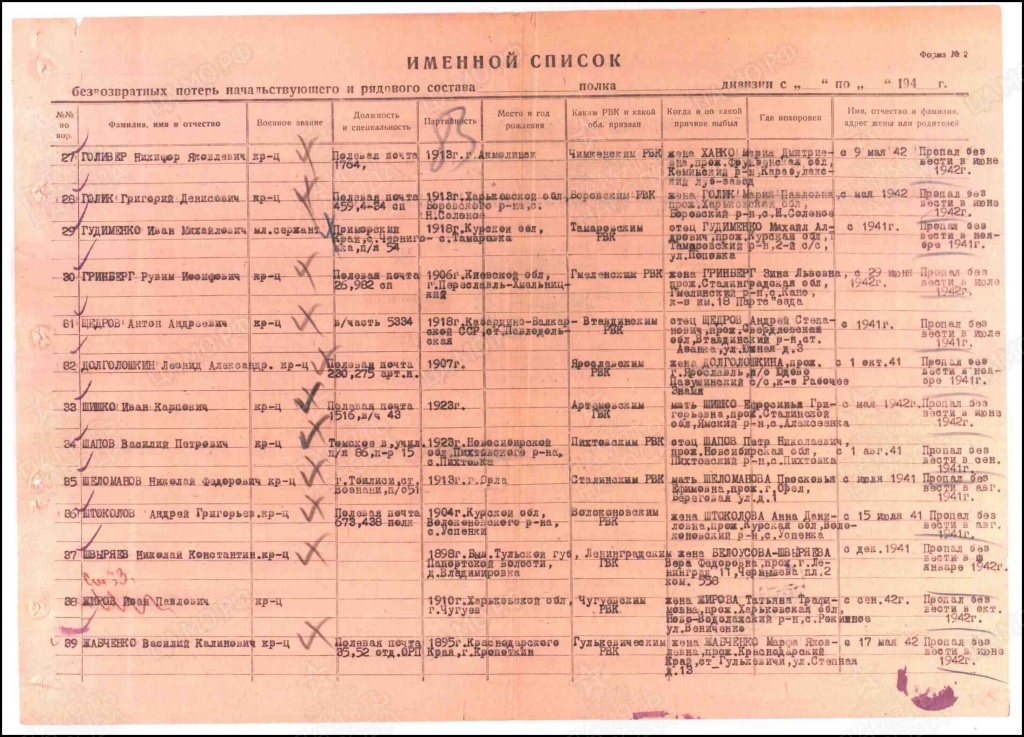 ИМЕННОЙ СПИСОК
Форма № 2
безвозвратных потерь начальствующего и рядового состава полка дивизии с „ “ по „ “ 194 г.
№№ по пор. Фамилия, имя и отчество Военное звание Должность и специальность Партийность Место и год рождения Каким РВК и какой обл. призван Когда и по какой причине выбыл Где похоронен Имя, отчество и фамилия, адрес жены или родителей
85
27 ГОЛИВЕР Никифор Яковлевич кр-ц Полевая почта 1913г.г.Акмолинск Чимкенским РВК жена ХАНКО Мария Дмитрие- с 9 мая 42 Пропал без
1764, вна,прож.Фрунзенская обл, вести в июне
Кеминский р-н,Карабулакс- 1942г.
кий луб-завод
28 ГОЛИК Григорий Денисович кр-ц Полевая почта 1913г.Харьковской обл, Боровским РВК жена ГОЛИК Мария Павловна с мая 1942 Пропал без
459,4-84 сп Боровского р-на,с. прож.Харьковская обл, вести в июне
Н.Соленое Боровский р-н,с.Н.Соленое 1942г.
29 ГУДИМЕНКО Иван Михайлович мл.сержант Приморский 1918г.Курской обл, Тамаровским отец ГУДИМЕНКО Михайл Ал- с 1941г. Пропал без
Край,с.Черниго- с.Тамаровка РВК дрович,прож.Курская обл, вести в ноя-
вка,п/я 54 Тамаровский р-н,2-й с/с, бре 1941г.
ул.Поповка
30 ГРИНБЕРГ Рувим Иосифович кр-ц Полевая почта 1906г.Киевской обл, Гмеленским РВК жена ГРИНБЕРГ Зина Львовна, с 29 июня Пропал без
26,982 сп г.Переславль-Хмельниц- прож.Сталинградская обл, 1942г. вести в июле
кий Гмелинский р-н,с.Кано, 1942г.
к-з им.18 Партс"езда
31 ЩЕДРОВ Антон Андреевич кр-ц в/часть 5334 1918г.Кабардино-Балкар- Втавдинским отец ЩЕДРОВ Андрей Степа- с 1941г. Пропал без
ской ССР,ст.Павлодоль- РВК нович,прож.Свердловская вести в июле
ская обл.Втавдинский р-н,ст. 1941г.
Азанка,ул.Южная д.3
32 ДОЛГОЛОШКИН Леонид Александр. кр-ц Полевая почта 1907г. Ярославским жена ДОЛГОЛОШКИНА,прож. с 1 окт.41 Пропал без
230,275 арт.п. РВК г.Ярославль,п/о вести в ноя-
Пазушинский с/с,к-з Рабочее бре 1941г.
Знамя
33 ШИШКО Иван Карпович кр-ц Полевая почта 1923г. Артемовским мать ШИШКО Ефросинья Гри- с мая 1942г. Пропал без
1516,в/ч 43 РВК горьевна,прож.Сталинской вести в июне
обл,Ямский р-н,с.Алексеевка 1942г.
34 ШАПОВ Василий Петрович кр-ц Томское в,учил. 1923г.Новосибирской Пихтовским РВК отец ШАПОВ Петр Николаевич, с 1 авг.41 Пропал без
п/я 86,п-р 15 обл,Пихтовского р-на, прож.Новосибирская обл, вести в сен.
с.Пихтовка Пихтовский р-н,с.Пихтовка 1941г.
35 ШЕЛОМАНОВ Николай Федорович кр-ц г.Тбилиси,ст. 1913г.г.Орла Сталинским РВК мать ШЕЛОМАНОВА Просковья с июля 1941 Пропал без
п/о51 Ефимовна,прож.г.Орел, вести в авг.
Береговая ул.д.1 1941г.
36 ШТОКОЛОВ Андрей Григорьев. кр-ц Полевая почта 1904г.Курской обл, Волоконовским жена ШТОКОЛОВА Анна Дани- с 15 июля 41 Пропал без
673,438 полк Волоконовского р-на, РВК ловна,прож.Курская обл,Воло- вести в авг.
с.Успенки коновский р-н,с.Успенка 1941г.
37 ШВЫРЯЕВ Николай Константин. кр-ц 1898г.Быв.Тульской губ, Ленинградским жена БЕЛОУСОВА-ШВЫРЯЕВА с дек.1941 Пропал без
Папортской волости, РВК Вера Федоровна,прож.г.Ле- вести в
д.Владимировка нинград 11,Чернышева пл.2 январе 1942г.
ком. 558
38 ЖИРОВ Иван Павлович кр-ц 1910г.Харьковской обл, Чугуевским жена ЖИРОВА Татьяна Трафи- с сен.42г. Пропал без
г.Чугуев РВК мовна,прож.Харьковская обл, вести в окт.
Ново-Водолажский р-н,с.Ракитное 1942г.
ул.Вениченко
39 ЖАБЧЕНКО Василий Калинович кр-ц Полевая почта 1895г.Краснодарского Гулькевическим жена ЖАБЧЕНКО Марфа Яков- с 17 мая 42 Пропал без
35,52 отд.ОРП Края,г.Кропоткин РВК левна,прож.Краснодарский вести в июне
Край,ст.Гулькевичи,ул.Степная 1942г.
д.13